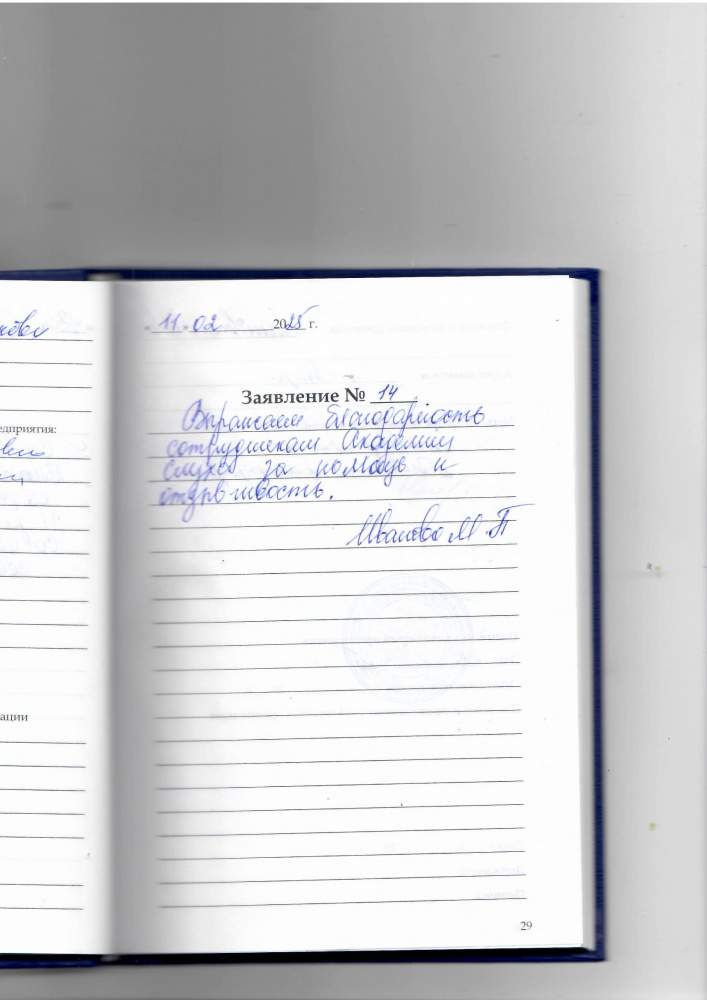 едприятия:
ации
" 11 " 02 2025 г.
Заявление № 14
Выражаем благодарность
сотрудникам Академии
слуха за помощь и
отзывчивость.
Иванова М.П
29